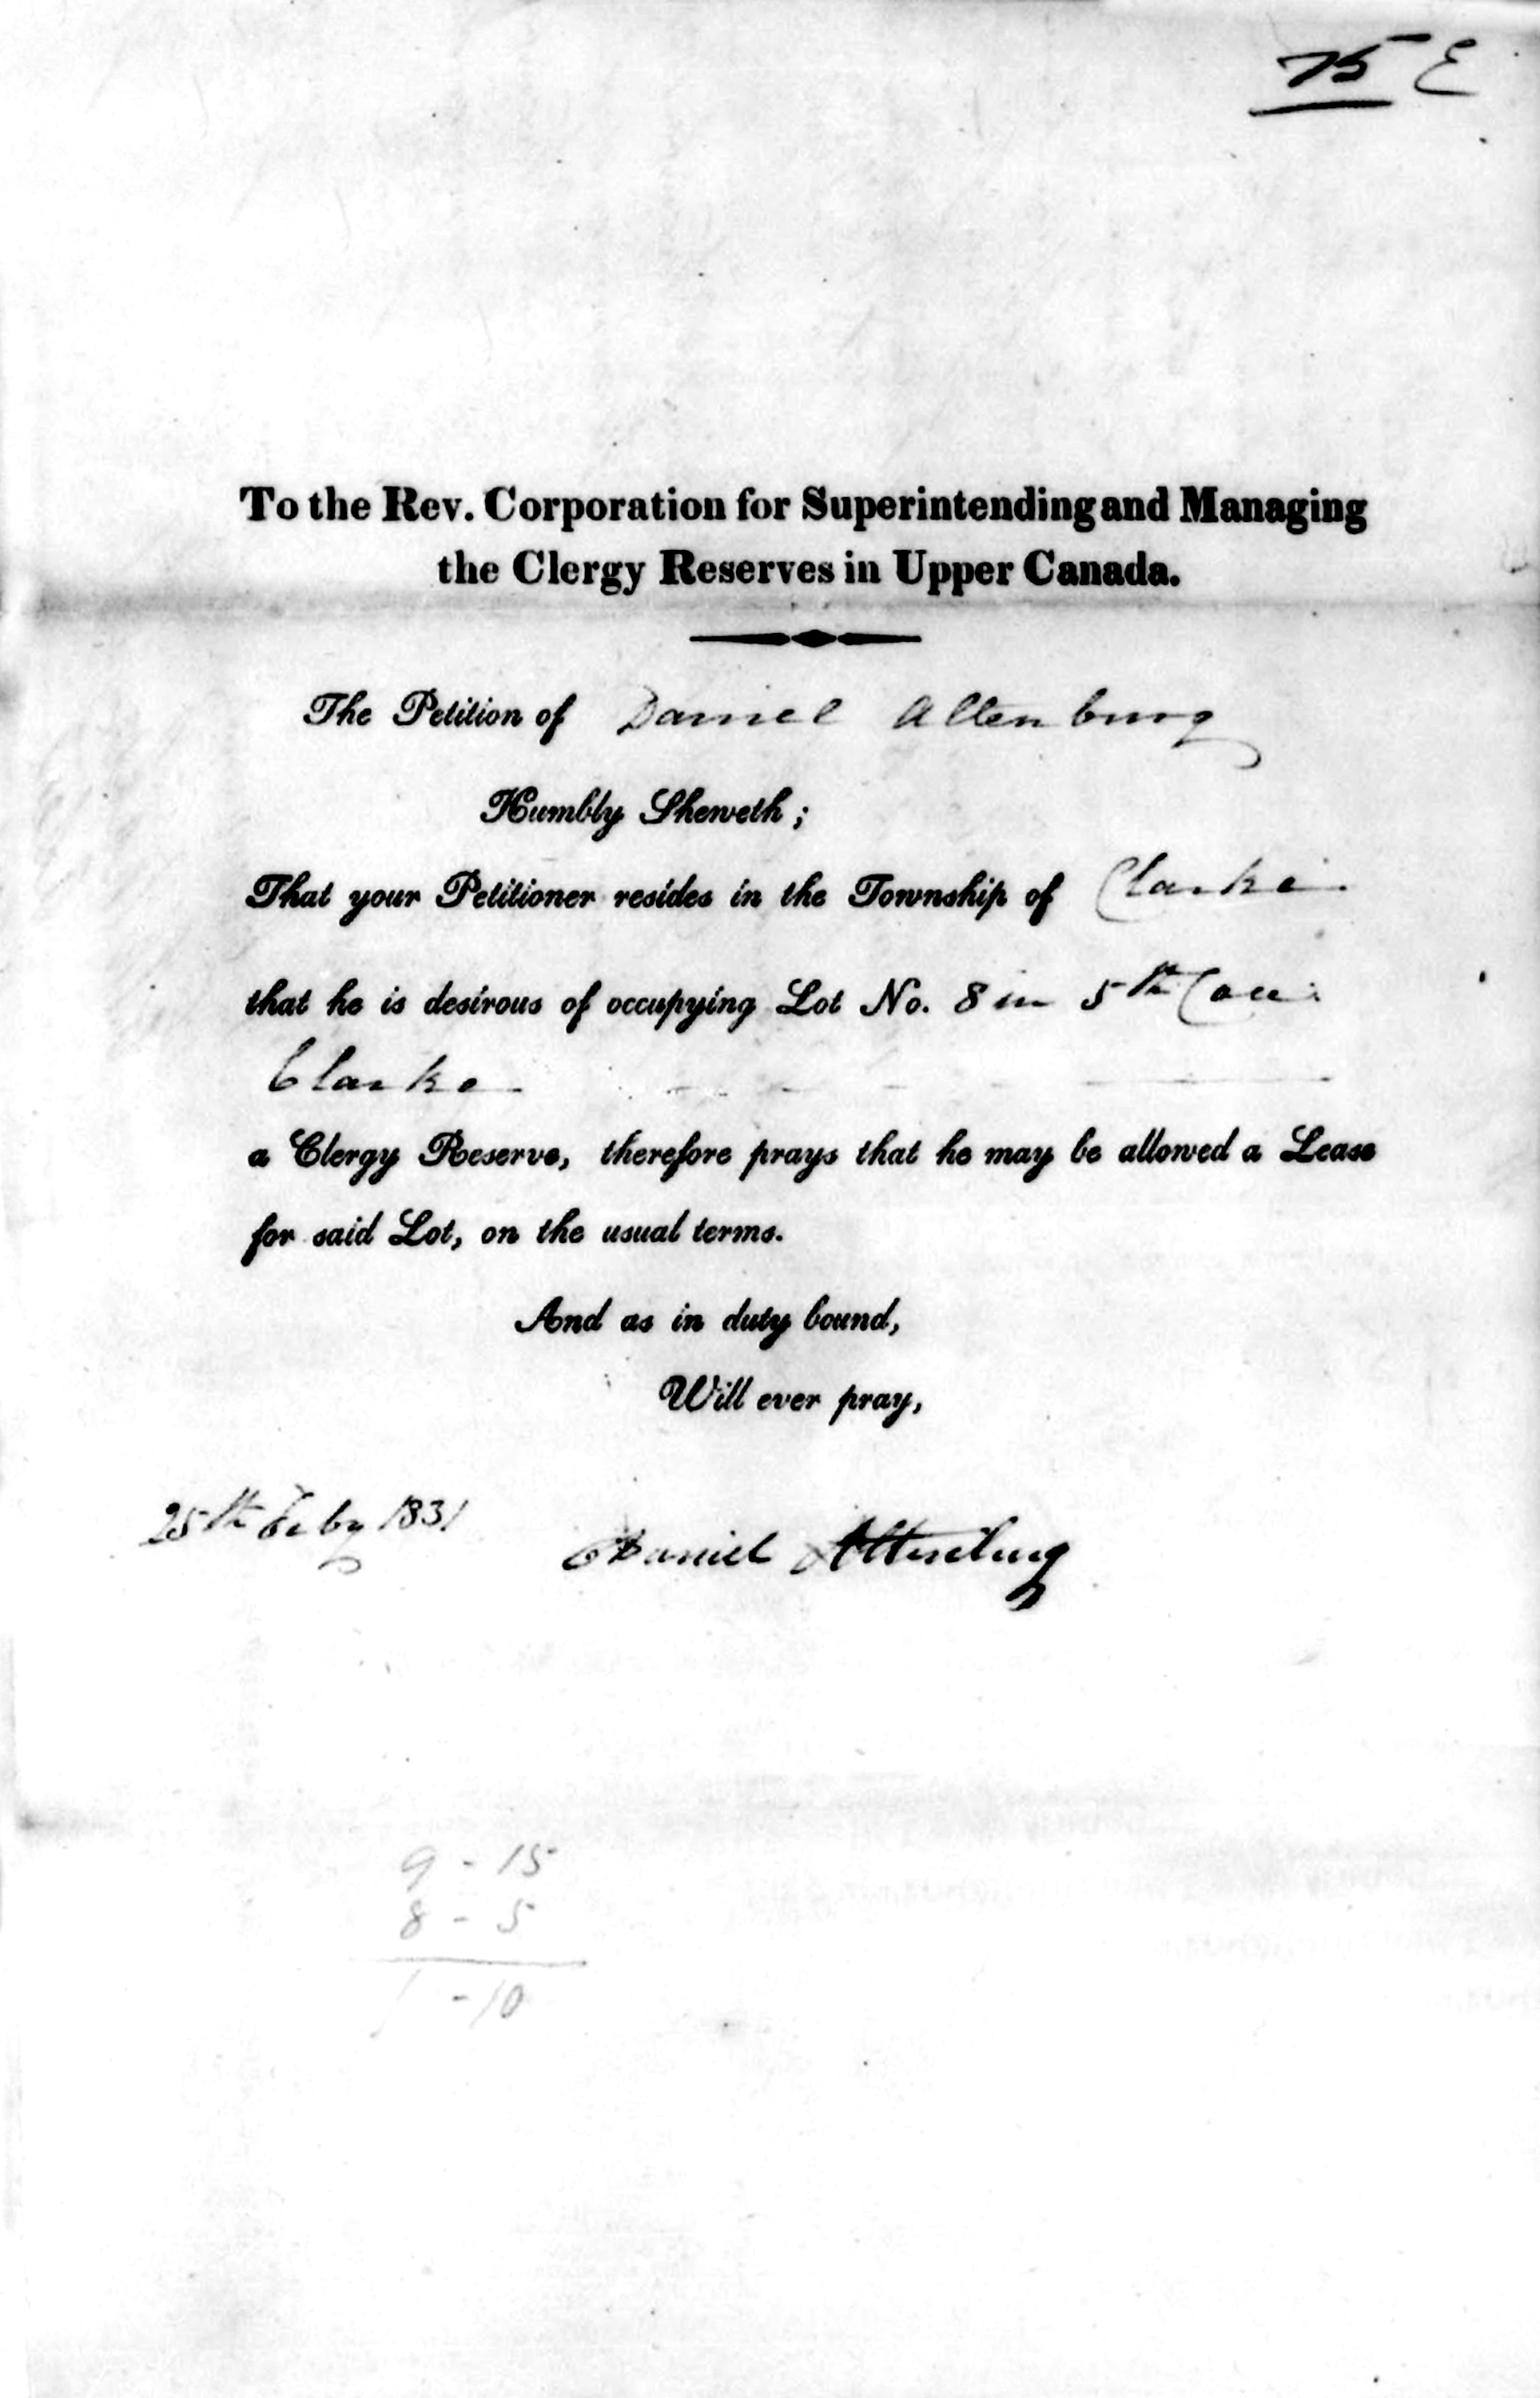 75 E
To the Rev. Corporation for Superintending and Managing
the Clergy Reserves in Upper Canada.
The Petition of Daniel Altenburg
Humbly Sheweth;
That your Petitioner resides in the Township of Clarke
that he is desirous of occupying Lot No. 8 in 5th Con:
Clarke
a Clergy Reserve, therefore prays that he may be allowed a Lease
for said Lot, on the usual terms.
And as in duty bound,
Will ever pray,
25th Feby 1831
Daniel Altenburg
9 - 15
8 - 5
1 - 10